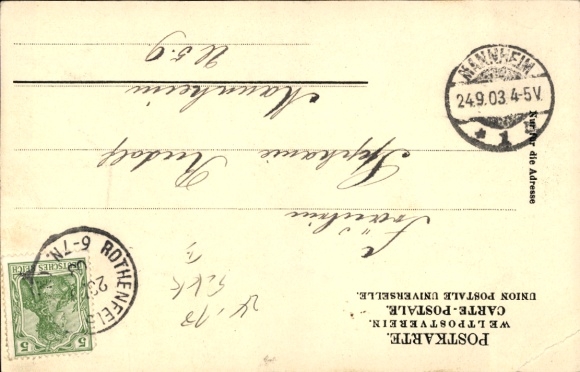 POSTKARTE.
WELTPOSTVEREIN.
CARTE-POSTALE.
UNION POSTALE UNIVERSELLE.
Fräulein
Stephanie Rudolf
Mannheim
U 5.9
Nur für die Adresse
MANNHEIM
24.9.03. 4-5V.
* 1
ROTHENFELS
6-7N.
DEUTSCHES REICH
5 5